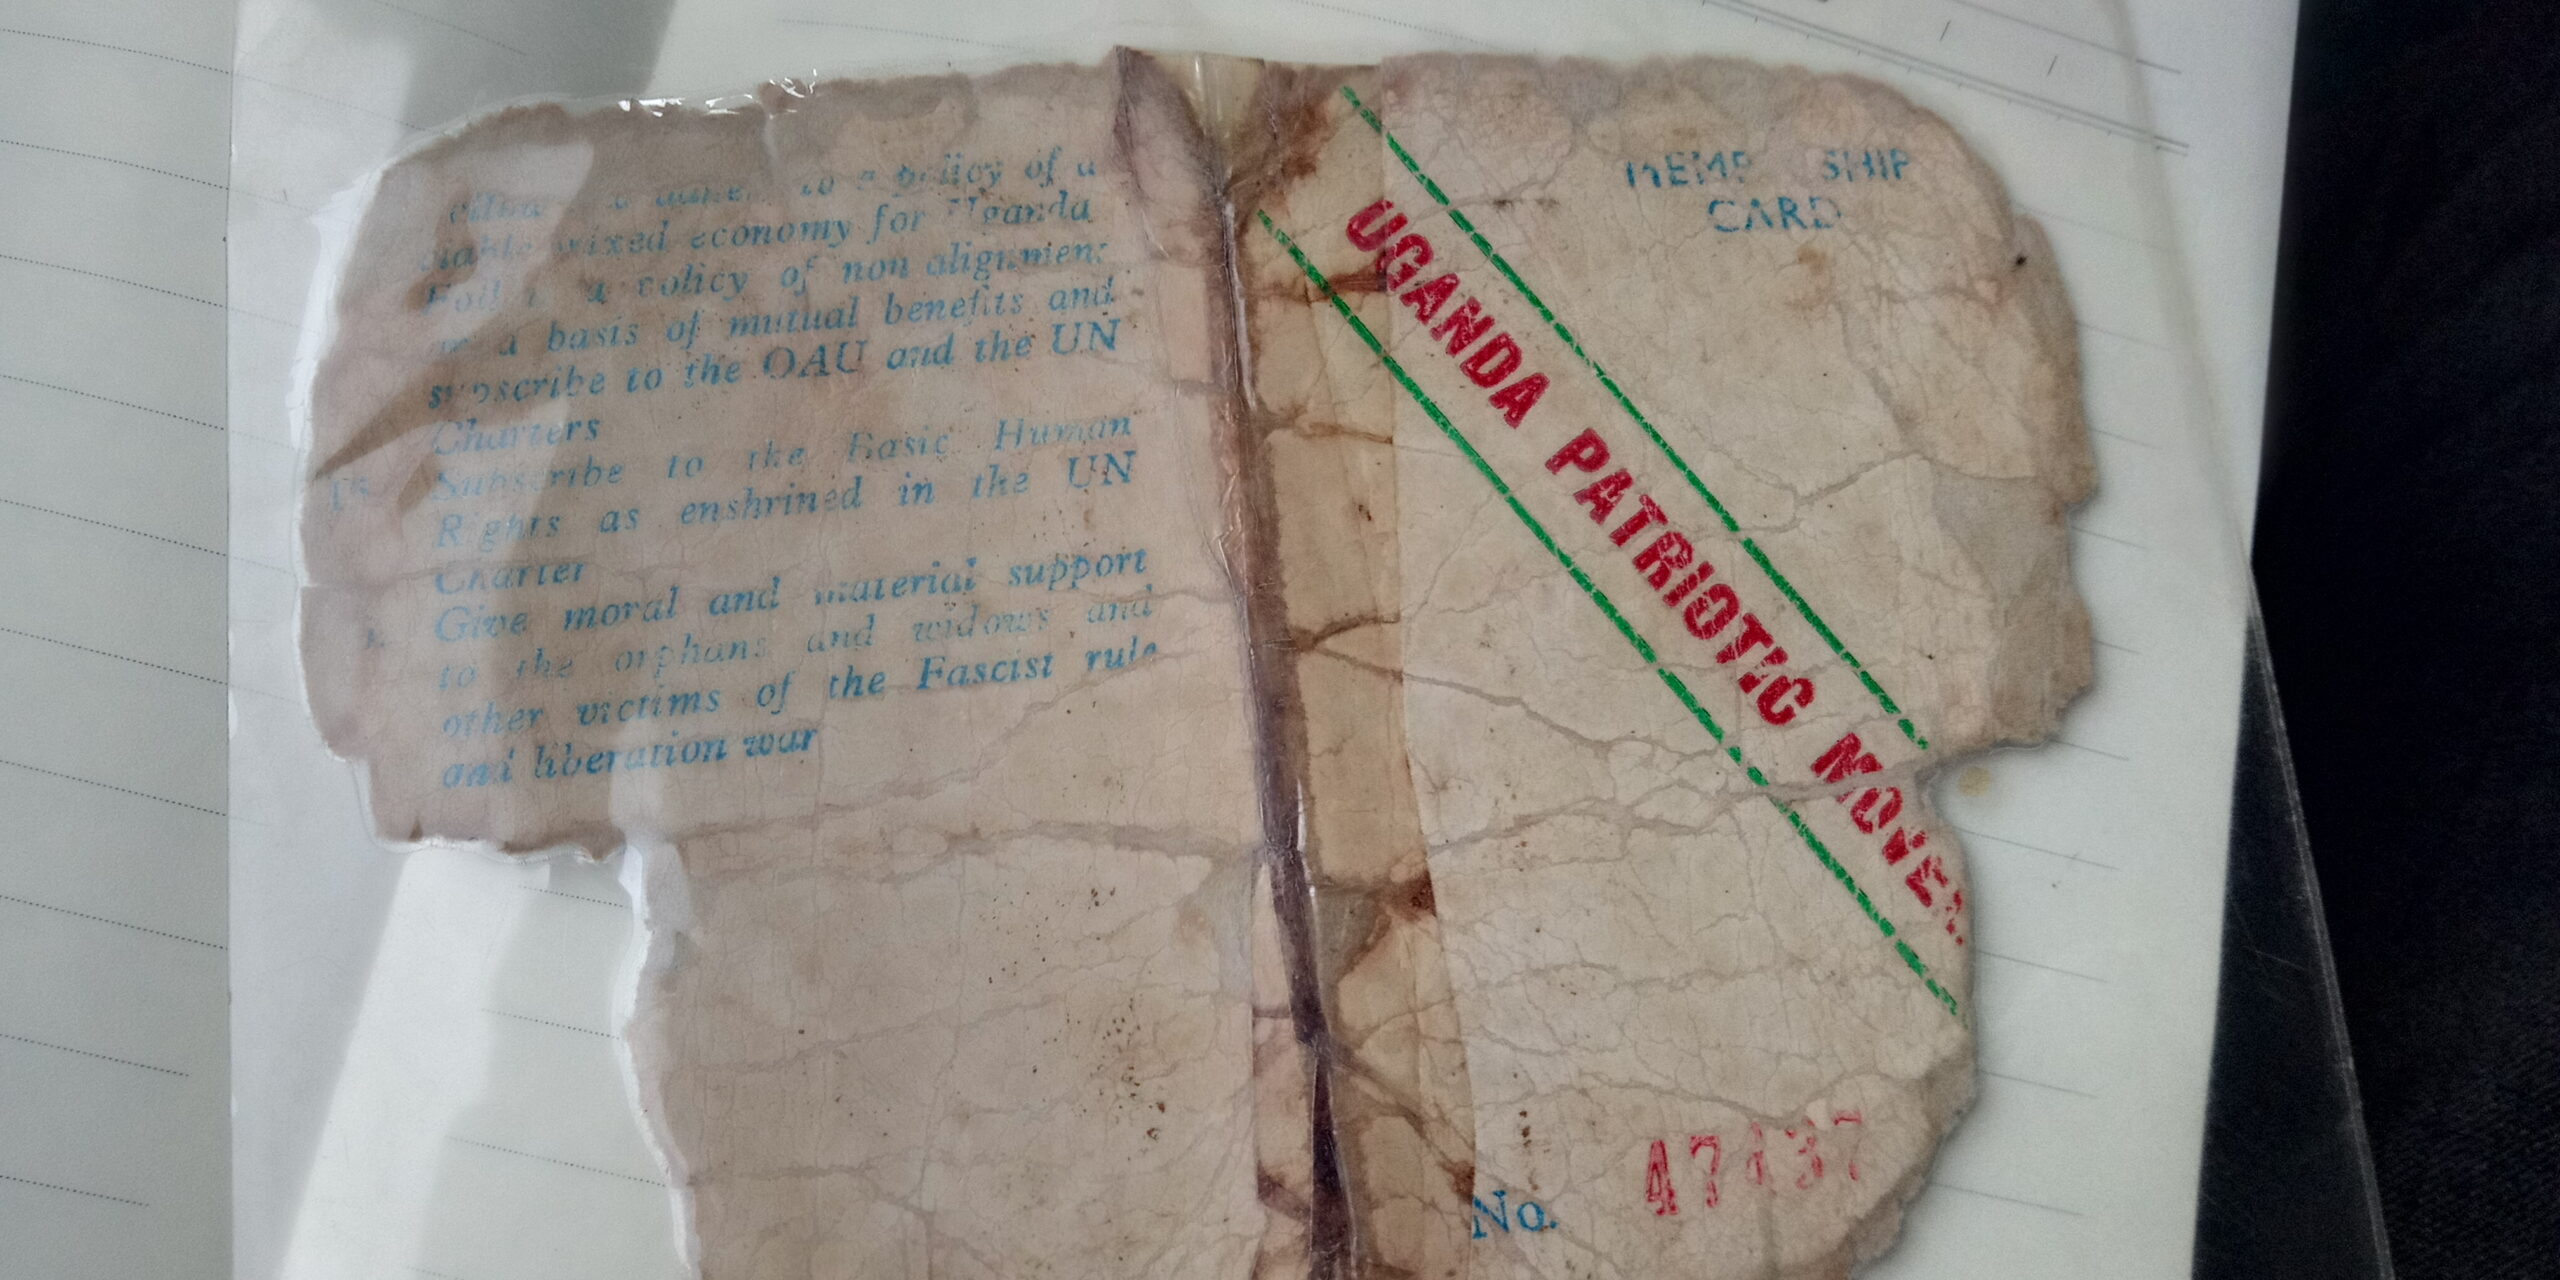 to a policy of a
mixed economy for Uganda
a policy of non alignment
a basis of mutual benefits and
subscribe to the OAU and the UN
Charters
Subscribe to the Basic Human
Rights as enshrined in the UN
Charter
Give moral and material support
to the orphans and widows and
other victims of the Fascist rule
and liberation war
MEMB SHIP
CARD
UGANDA PATRIOTIC MOVEM
No.